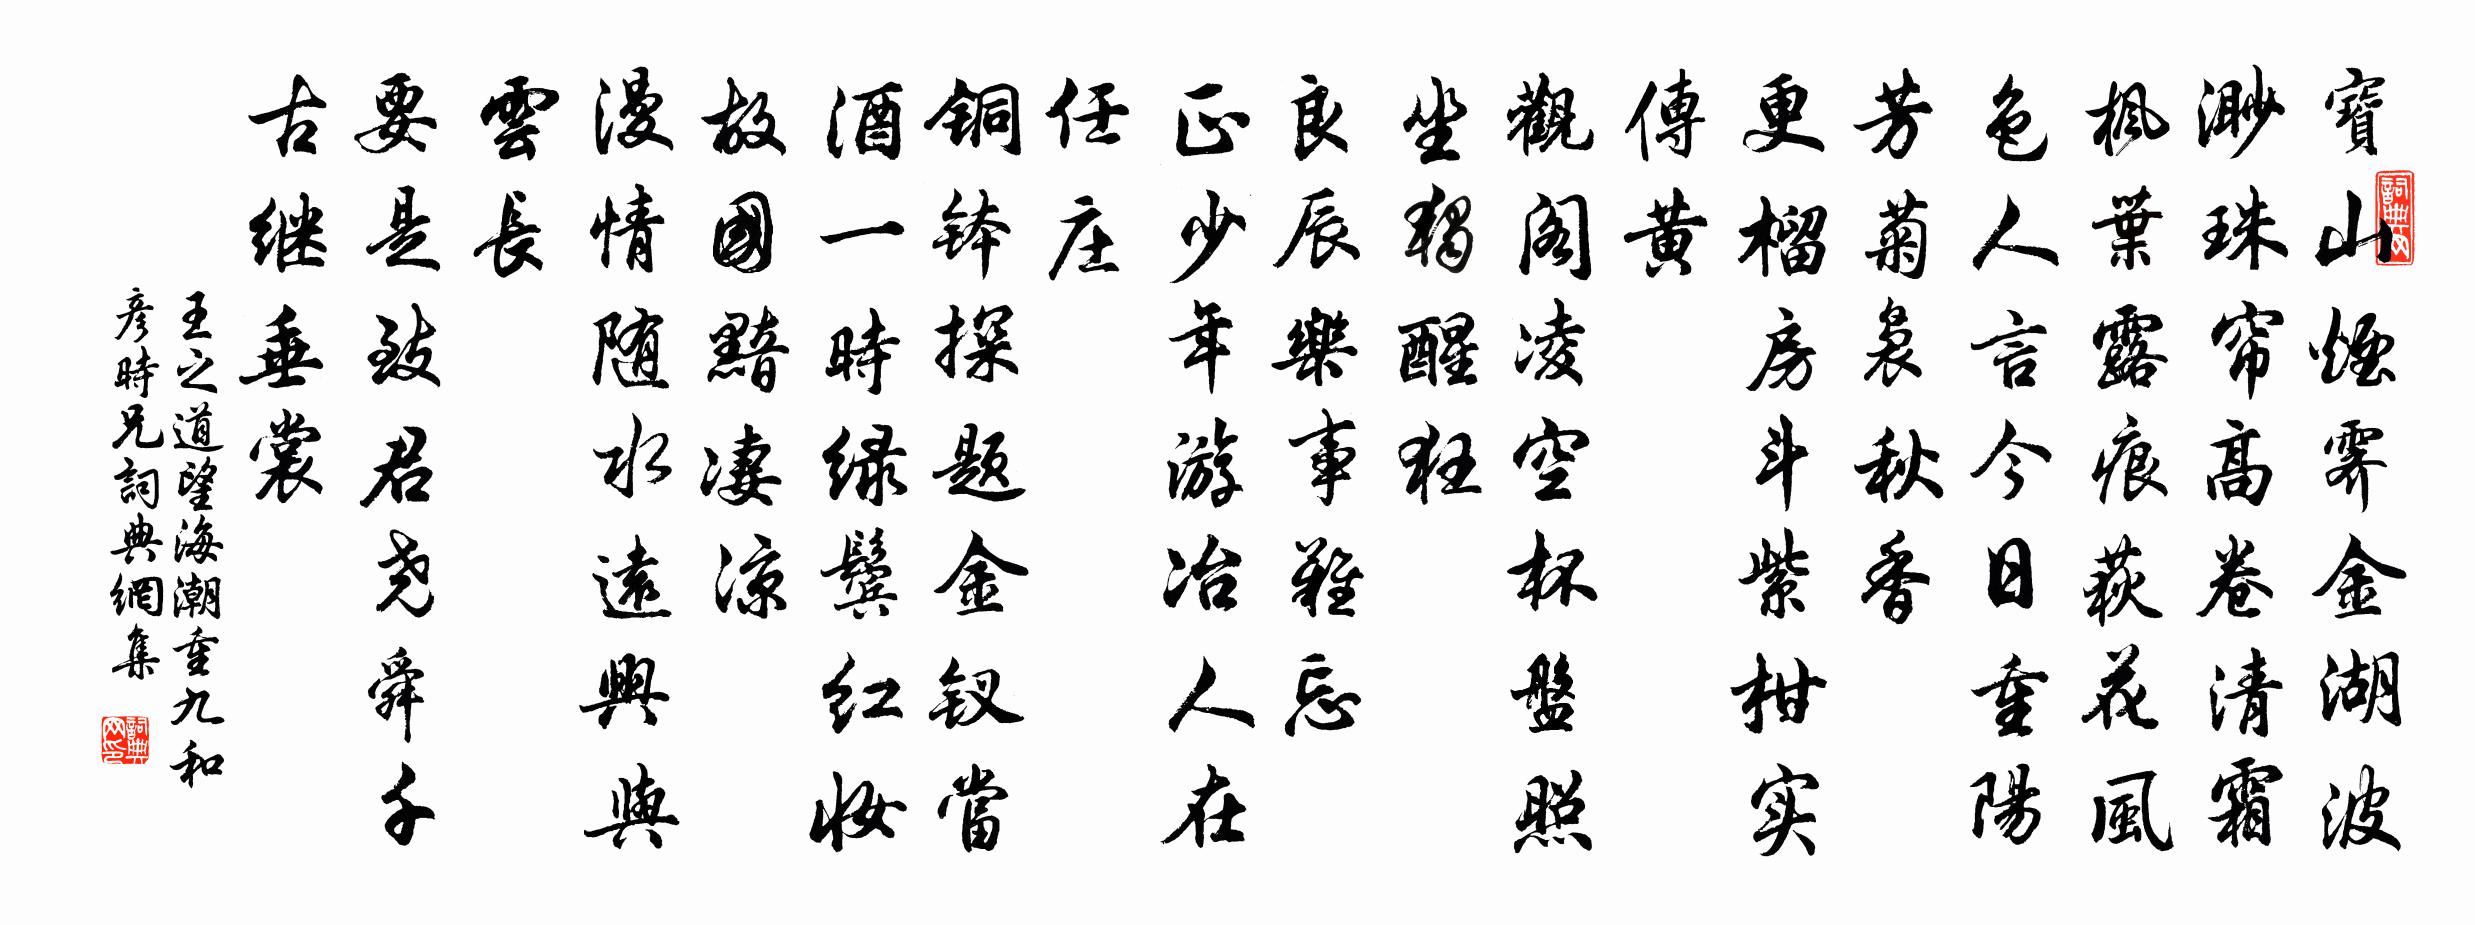 寶山煙霽金湖波
渺珠帘高卷清霜
楓葉露痕荻花風
色人言今日重陽
芳菊裊秋香
更榴房斗紫柑实
傳黄
觀阁凌空杯盤照
坐獨醒狂
良辰樂事難忘
正少年游冶人在
任庄
铜钵探题金钗當
酒一時绿鬓红妆
故國黯凄凉
漫情随水遠興與
雲長
要是致君尧舜千
古继垂裳
王之道望海潮重九和
彦時兄詞典網集
詞典网
詞典网印